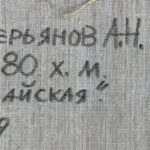 ЕРЬЯНОВ А.Н.
80 х.м.
АЙСКАЯ".
9